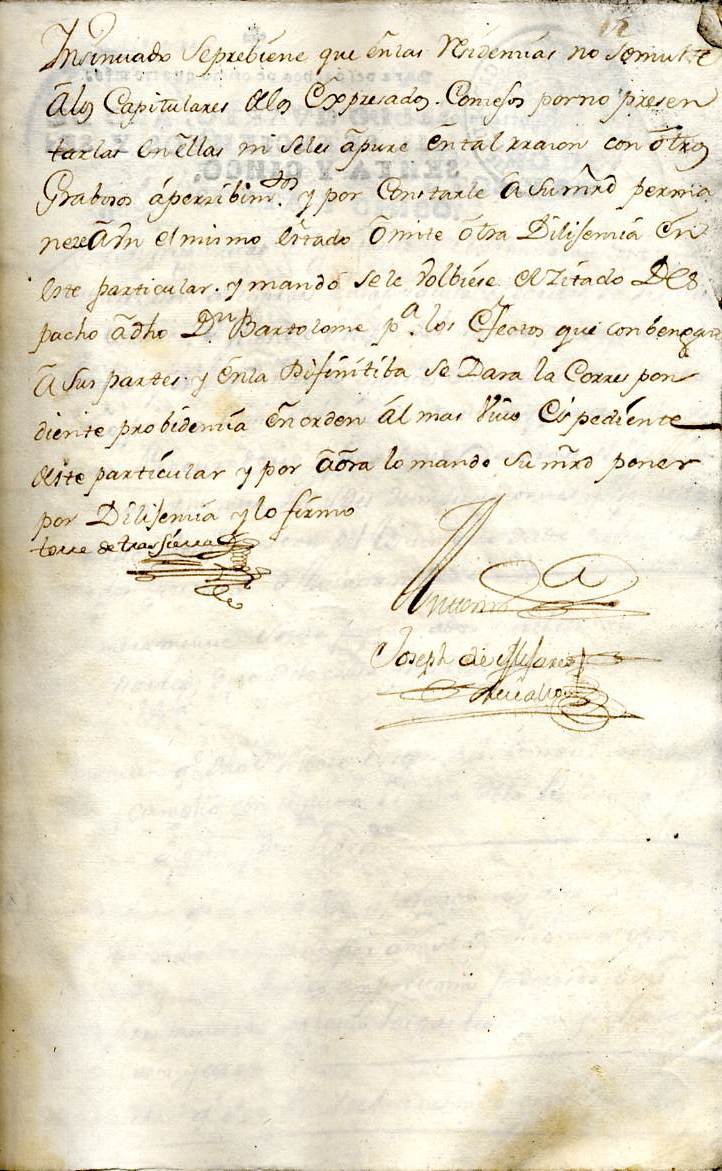 12
Insinuado Seprebiene que enlas Residenzias no semulte
alos Capitulares delos Expresados. Consejos porno presen
tarlas en ellas ni seles apure en tal rrazon con otros
Grabosos aperzibim.tos y por Constarle a su mrd perma
neze aun el mismo estado omite otra Dilijenzia en
este particular. y mando sele volbiese el Zitado Des
pacho adho D.n Bartolome p.a los efectos que conbengan
a sus partes y enla Difinitiba se Dara la Corres pon
diente probidenzia en orden al mas Espediente
deste particular y por aora lo mando su mrd poner
por Dilijenzia y lo firmo
torre de tras sierra
Antemi
Joseph de